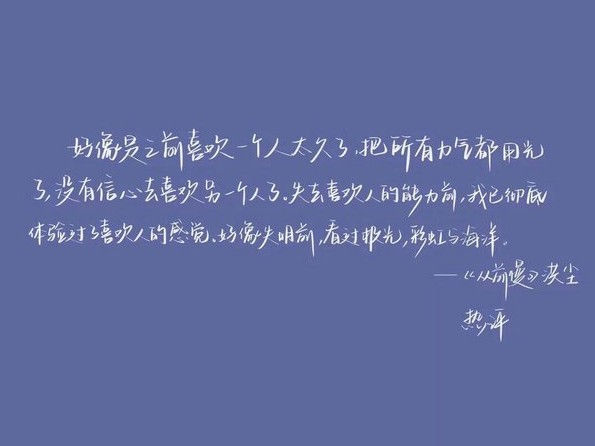 好像是之前喜欢一个人太久了,把所有力气都用光
了,没有信心去喜欢另一个人了。失去喜欢人的能力前,我已彻底
体验过了喜欢人的感觉、好像失明前,看过极光,彩虹与海洋。
——《从前慢》漠尘
热评